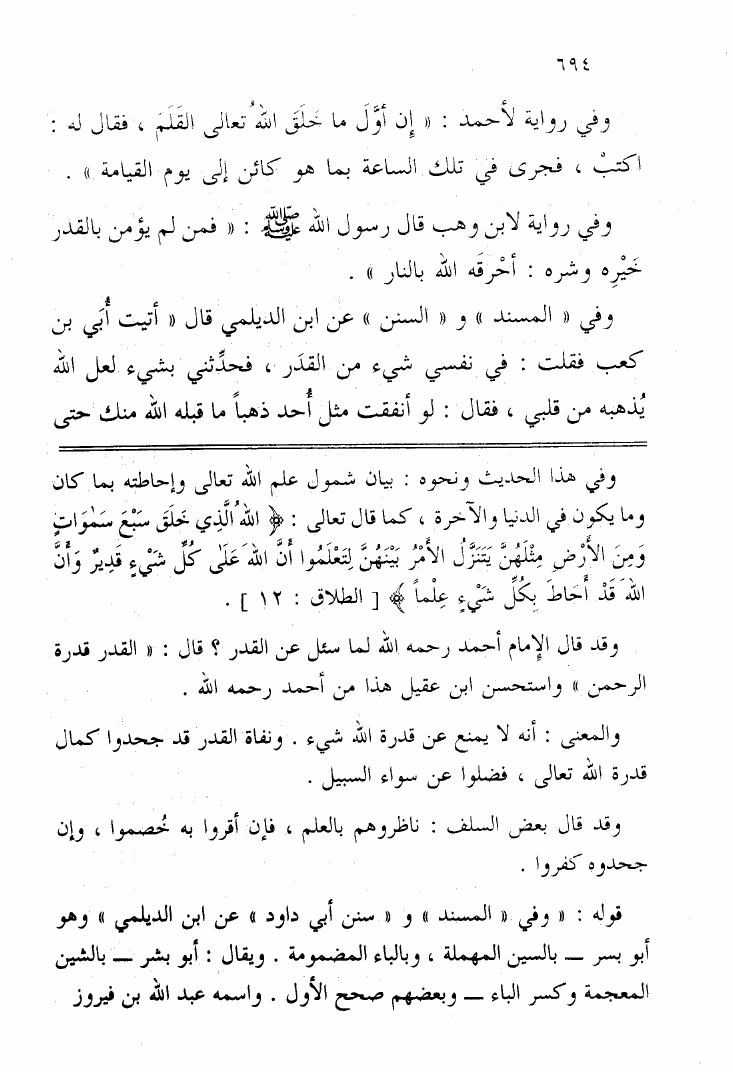 ٦٩٤
وفي رواية لأحمد : « إن أوَّلَ ما خَلَقَ اللهُ تعالى القَلَمَ ، فقال له :
اكتبْ ، فجرى في تلك الساعة بما هو كائن إلى يوم القيامة » .
وفي رواية لابن وهب قال رسول الله ﷺ : « فمن لم يؤمن بالقدر
خَيْرِه وشره : أحْرقَه الله بالنار » .
وفي « المسند » و « السنن » عن ابن الديلمي قال « أتيت أُبي بن
كعب فقلت : في نفسي شيء من القدَر ، فحدِّثني بشيء لعل الله
يُذهبه من قلبي ، فقال : لو أنفقت مثل أُحد ذهباً ما قبله الله منك حتى
وفي هذا الحديث ونحوه : بيان شمول علم الله تعالى وإحاطته بما كان
وما يكون في الدنيا والآخرة ، كما قال تعالى : ﴿ اللهُ الَّذِي خَلَقَ سَبْعَ سَمٰوَاتٍ
وَمِنَ الأَرْضِ مِثْلَهُنَّ يَتَنَزَّلُ الأَمْرُ بَيْنَهُنَّ لِتَعْلَمُوا أَنَّ اللهَ عَلَى كُلِّ شَيْءٍ قَدِيرٌ وَأَنَّ
اللهَ قَدْ أَحَاطَ بِكُلِّ شَيْءٍ عِلْماً ﴾ [ الطلاق : ١٢ ] .
وقد قال الإمام أحمد رحمه الله لما سئل عن القدر ؟ قال : « القدر قدرة
الرحمن » واستحسن ابن عقيل هذا من أحمد رحمه الله .
والمعنى : أنه لا يمنع عن قدرة الله شيء . ونفاة القدر قد جحدوا كمال
قدرة الله تعالى ، فضلوا عن سواء السبيل .
وقد قال بعض السلف : ناظروهم بالعلم ، فإن أقروا به خُصموا ، وإن
جحدوه كفروا .
قوله : « وفي « المسند » و « سنن أبي داود » عن ابن الديلمي » وهو
أبو بسر — بالسين المهملة ، وبالباء المضمومة . ويقال : أبو بشر — بالشين
المعجمة وكسر الباء — وبعضهم صحح الأول . واسمه عبد الله بن فيروز